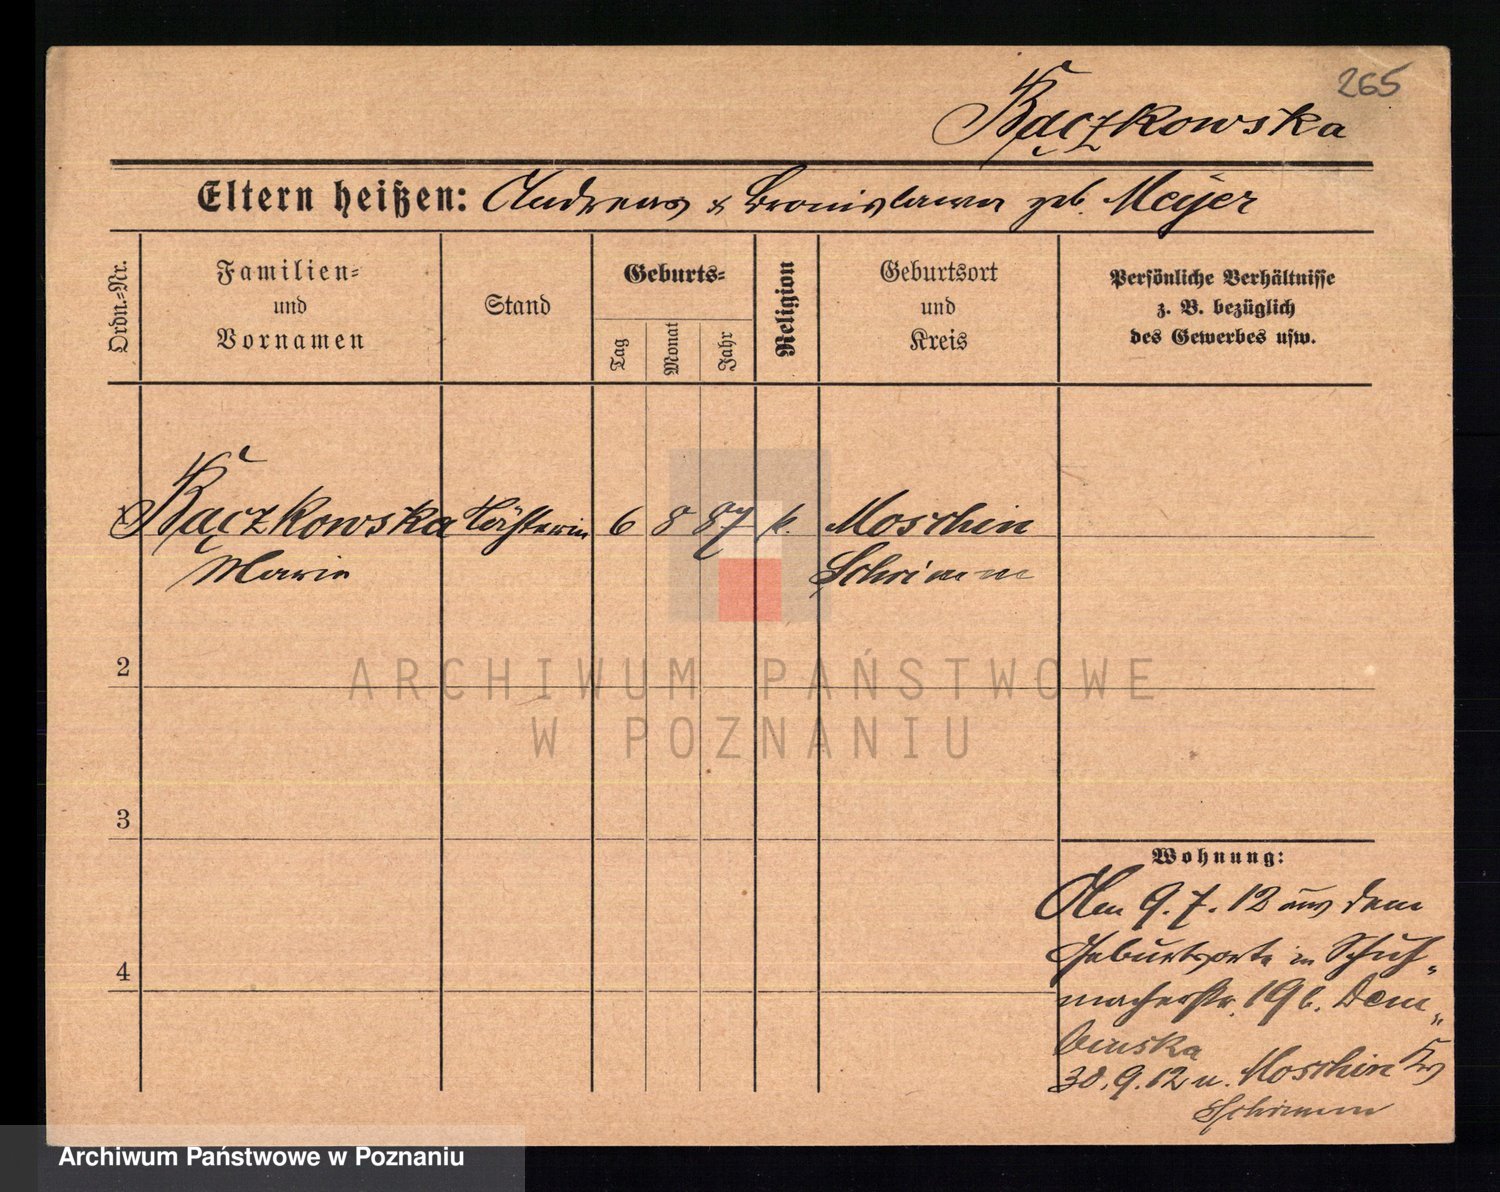 265
Bączkowska
Eltern heißen: Andreas & Bronislawa geb. Meyer
Ordn.-Nr.
Familien-
und
Vornamen
Stand
Geburts-
Tag
Monat
Jahr
Religion
Geburtsort
und
Kreis
Persönliche Verhältnisse
z. B. bezüglich
des Gewerbes usw.
1 Bączkowska 6 8 87 k. Moschin
Marie Schrimm
ARCHIWUM PAŃSTWOWE
W POZNANIU
2
3
4
Wohnung:
Am 9. 7. 12 aus dem
Geburtsorte in Schuh-
macherstr. 19 b. Dem-
binska
30. 9. 12 n. Moschin Krs
Schrimm
Archiwum Państwowe w Poznaniu